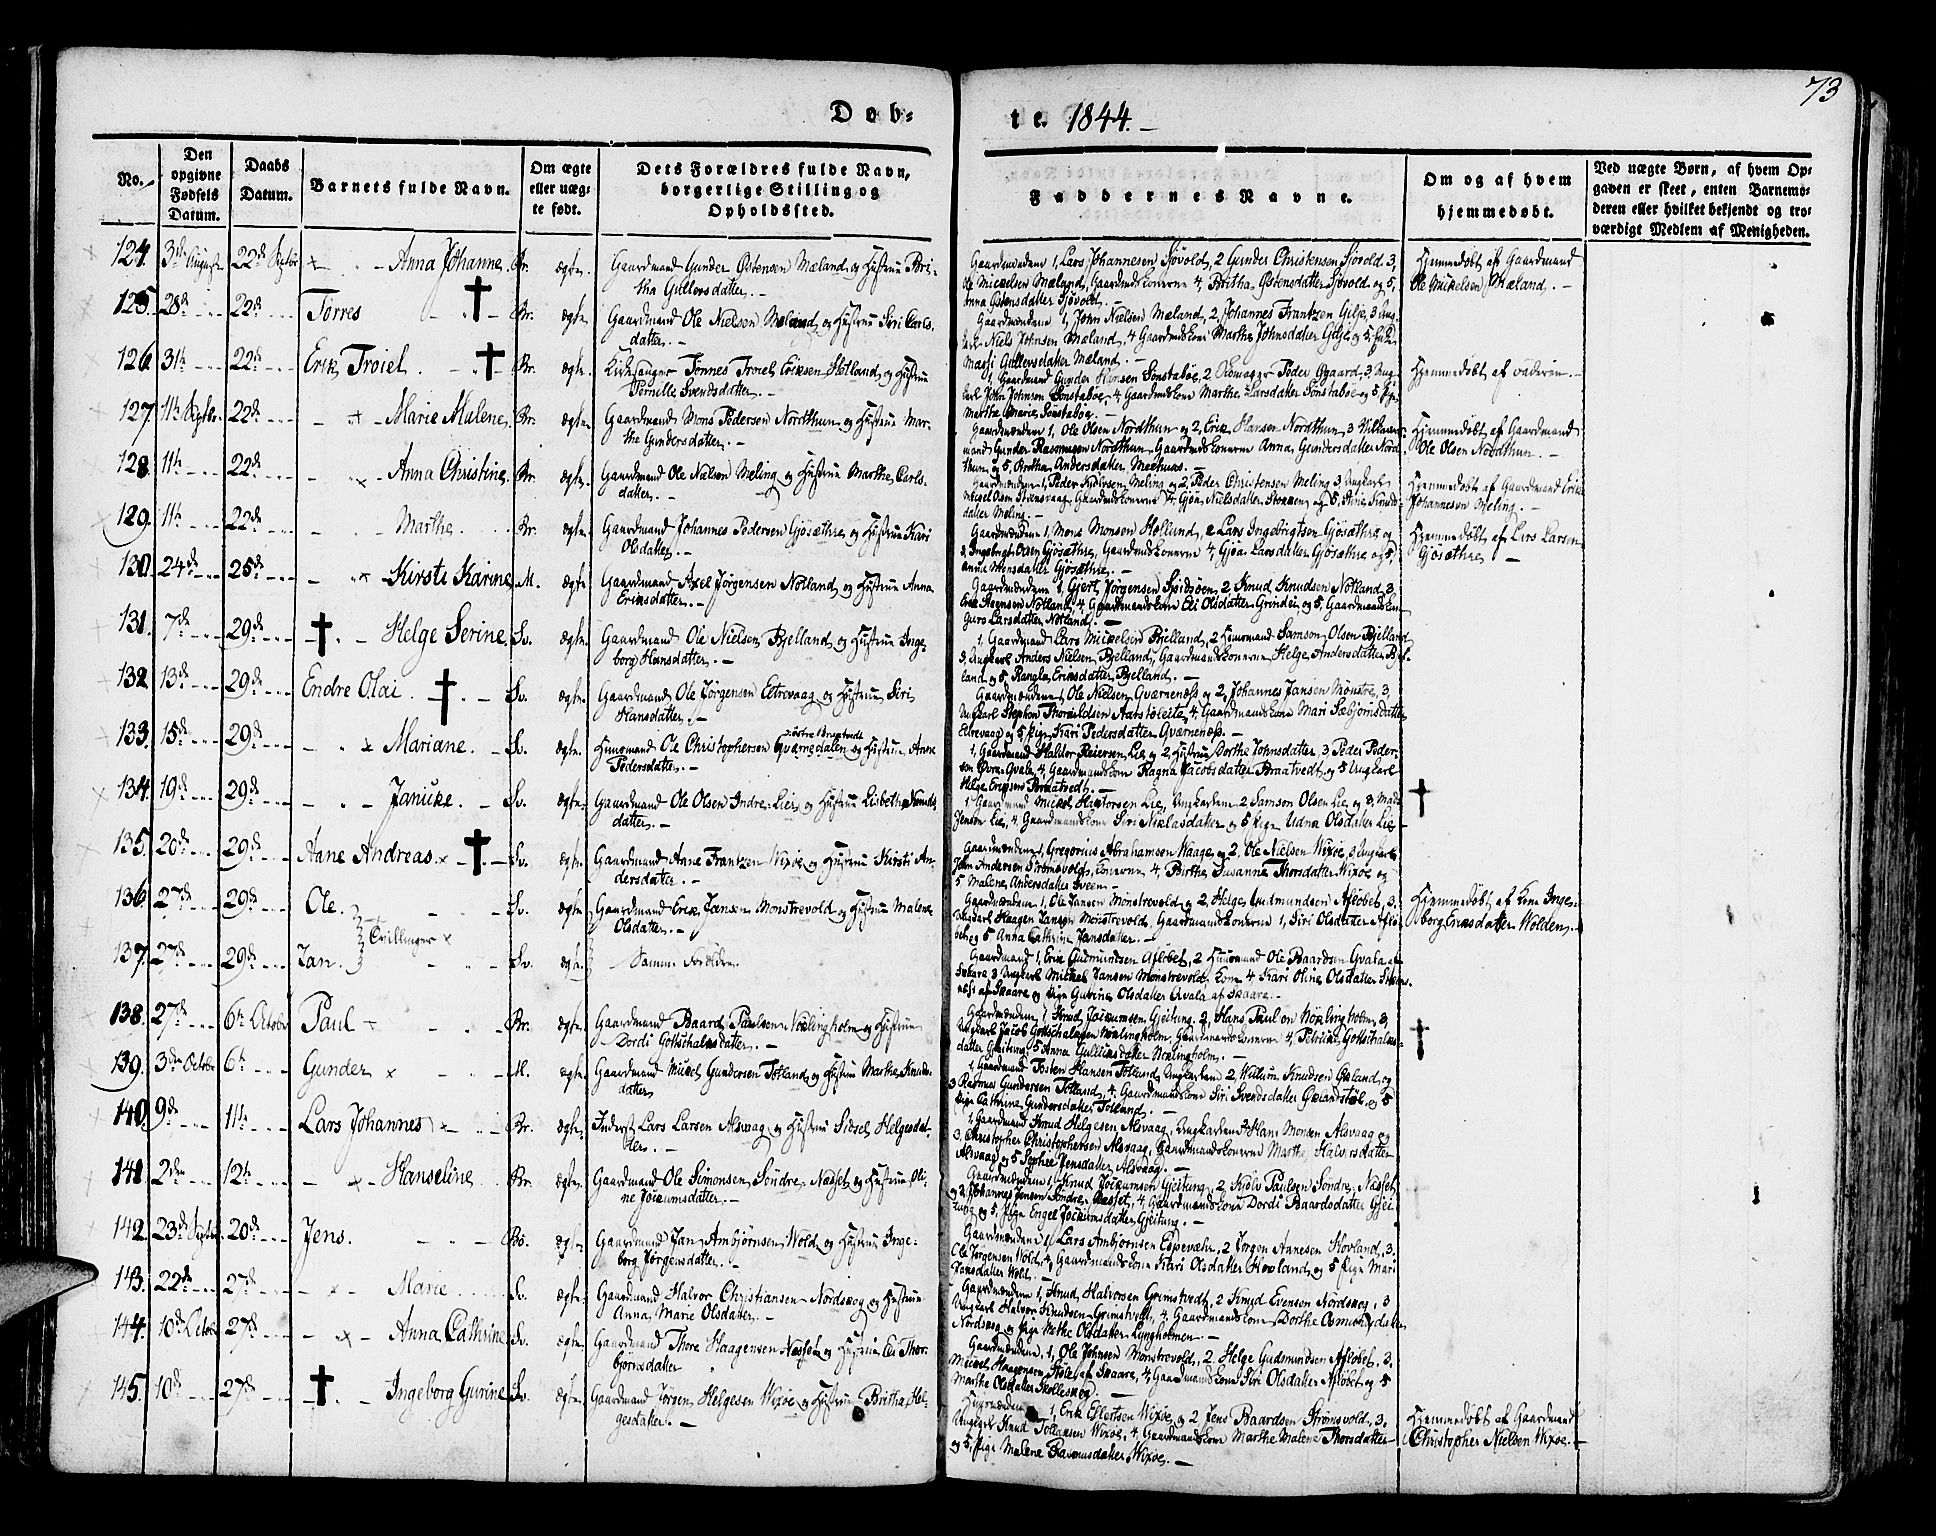 73
Døb-
te. 1844.
No.
Den opgivne Fødsels Datum.
Daabs Datum.
Barnets fulde Navn.
Om ægte eller uæg-te født.
Dets Forældres fulde Navn, borgerlige Stilling og Opholdssted.
Faddernes Navne.
Om og af hvem hjemmedøbt.
Ved uægte Børn, af hvem Op-gaven er skeet, enten Barnemo-deren eller hvilket bekjendt og tro-værdigt Medlem af Menigheden.
124. 3die August 22de Septbr Anna Johanne Br. ægte. Gaardmand Gunder Østensen Mæland og Hustrue Bri-
tha Gullersdatter.
Gaardmændene 1, Lars Johannesen Sjøvold, 2 Gunder Christensen Sjøvold 3,
Ole Mikelsen Mæland, Gaardmandskonerne 4, Britha Østensdatter Sjøvold og 5,
Anna Østensdatter Sjøvold.
Hjemmedøbt af Gaardmand
Ole Mikelsen Mæland.
125. 28de 22de Torres Br. ægte. Gaardmand Ole Nielsen Mæland og Hustrue Siri Carls-
datter.
Gaardmændene 1, John Nielsen Mæland, 2 Johannes Frantzen Gilje, 3 Ung-
karl Niels Johnsen Mæland, 4 Gaardmandskone Marthe Johnsdatter Gilje og 5 Pige
Magsi Gullersdatter Mæland.
126. 31te 22de Erik Troiel Br. ægte. Kirkesanger Tønnes Troiel Eriksen Hetland og Hustrue
Pernille Svendsdatter.
1, Gaardmand Gunder Hansen Sønstabøe, 2 Peder Øgaard, 3, Ung-
karl John Johnsen Sønstabøe, 4 Gaardmandskone Marthe Larsdatter Sønstabøe og 5 Pige
Marthe Marie Sønstabøe.
Hjemmedøbt af Faderen.
127. 11te Septbr. 22de Marie Malene Br. ægte. Gaardmand Mons Pedersen Nordthun og Hustrue Mar-
the Gundersdatter.
Gaardmændene 1, Ole Olsen Nordthun og 2, Erik Hansen Nordthun, 3
mand Gunder Rasmussen Nordthun Gaardmandskonerne Anna Gundersdatter Nord-
thun og 5, Britha Andersdatter Mæhuus.
Hjemmedøbt af Gaardmand
Ole Olsen Nordthun.
128. 11te 22de Anna Christine Br. ægte. Gaardmand Ole Nielsen Meling og Hustrue Marthe Carls-
datter.
Gaardmændene 1, Peder Meling og 2, Peder Christensen Meling 3, Ungkarl
datter Meling.
Hjemmedøbt af Gaardmand Erik
Johannesen Meling.
129. 11te 22de Marthe Br. ægte. Gaardmand Johannes Pedersen Gjøsæthre og Hustrue Kari
Olsdatter.
Gaardmændene 1, Mons Monsen Høllund, 2 Lars Ingebrigtsen Gjøsæthre og
3, Ingebrigt Olsen Gjøsæthre, Gaardmandskonerne 4, Gjøa Larsdatter Gjøsæthre og 5,
Anna Monsdatter Gjøsæthre.
Hjemmedøbt af Lars Larsen
Gjøsæthre.
130. 24de 25de Kirsti Karine M. ægte. Gaardmand Axel Jørgensen Notland og Hustrue Anna
Eriksdatter.
Gaardmændene 1, Gjert Jørgensen 2 Knud Knudsen Notland 3,
Erik Notland, 4 Gaardmandskone Eli Olsdatter Grinden og 5, Gaardmandskone
Guro Larsdatter Notland.
131. 7de 29de Helge Serine Sv. ægte. Gaardmand Ole Nielsen Bjelland og Hustrue Inge-
borg Hansdatter.
1, Gaardmand Lars Mickelsen Bjelland, 2 Huusmand Samson Olsen Bjelland
3, Ungkarl Anders Nielsen Bjelland, Gaardmandskonerne Helge Andersdatter Bjel-
land og 5 Rangla Eriksdatter Bjelland.
132. 13de 29de Endre Olai Sv. ægte. Gaardmand Ole Jørgensen Eltrevaag og Hustrue Siri
Hansdatter.
Gaardmændene 1, Ole Nielsen Gværnenæss og 2, Johannes Jansen Mønstre, 3,
Ungkarl Stephen Thorkildsen 4, Gaardmandskone Mari Sæbjørnsdatter
Eltrevaag og 5, Pige Kari Pedersdatter Gværnenæss.
133. 15de 29de Mariane Sv. ægte. Huusmand Ole Christophersen Gværnedalen og Hustrue Anne
Pedersdatter.
1, Gaardmand Haldor Reiersen Lie og 2, Hustrue Dorthe Johnsdatter, 3 Peder Peder-
sen Øvre-Qvale, 4, Gaardmandskone Ragna Jacobsdatter Braatvedt og 5 Ungkarl
Helge Eriksen Braatvedt.
134. 19de 29de Janicke Sv. ægte. Gaardmand Ole Olsen Indre-Lier og Hustrue Lisbeth Knuds-
datter.
1, Gaardmand Mickel Lie, Ungkarlene 2 Samson Olsen Lie og 3, Mads
Jensen Lie, 4, Gaardmandskone Siri Nicklasdatter og 5 Pige Udne Olsdatter Lie.
135. 20de 29de Aane Andreas Sv. ægte. Gaardmand Aane Frantzen Wixøe og Hustrue Kirsti An-
dersdatter.
Gaardmændene 1, Gregorius Abrahamsen Waage og 2, Ole Nielsen Wixøe, 3 Ungkarl
John Andersen Strømsvold, Konerne 4, Birthe Susanne Thorsdatter Wixøe og
5 Malene Andersdatter Sveen.
136. 27de 29de Ole. Sv. ægte. Gaardmand Erik Jansen Monstrevold og Hustrue Malene
Olsdatter.
Tvillinger
Gaardmændene 1, Ole Jansen Monstrevold og 2, Helge Gudmundsen Afløbet, 3,
Ungkarl Haagen Jansen Monstrevold, Gaardmandskonerne 1, Siri Olsdatter Afløbet
og 5 Anna Cathrine Jansdatter.
Hjemmedøbt af Kone Inge-
borg Eriksdatter Wolden.
137. 27de 29de Jan. Sv. ægte. Samme Forældre.
Gaardmand 1, Erik Gudmundsen Afløbet, 2 Huusmand Ole Baardsen Qvala af
Skaare 3 Ungkarl Mickel Jansen Monstrevold, Kone 4 Kari Oline Olsdatter
næss af Skaare og Pige Gurine Olsdatter Qvala af Skaare.
138. 27de 6te Octobr Paul Br. ægte. Gaardmand Baard Paulsen Nøklingholm og Hustrue
Dordi Gotschalksdatter.
Gaardmændene 1, Knud Jockumsen Gjeitung, 2, Hans Paulsen Nøklingholm, 3,
Ungkarl Jacob Gotschalksen Nøklingholm, Gaardmandskonerne 4, Petricke Gotschalks-
datter Gjeitung, 5 Anna Gullicksdatter Nøklingholm.
139. 3die Octobr 6te Gunder M. ægte. Gaardmand Mickel Gundersen Totland og Hustrue Marthe Knuds-
datter
1, Gaardmand Torsten Hansen Totland, Ungkarlene 2, Willum Knudsen Øeland og
3 Rasmus Gundersen Totland, 4, Gaardmandskone Siri Svendsdatter og 5
Pige Cathrine Gundersdatter Totland.
140. 9de 11te Lars Johannes Br. ægte. Inderst Lars Larsen Alsvaag og Hustrue Sidsel Helgesdat-
ter.
1, Gaardmand Knud Helgesen Alsvaag, Ungkarlene 2 Hans Monsen Alsvaag og
3, Christopher Christophersen Alsvaag, Gaardmandskonerne Marthe Halvorsdatter
Alsvaag og 5 Sophie Jensdatter Alsvaag.
141. 2den 12te Hanseline Br. ægte. Gaardmand Ole Simonsen Søndre-Næsset og Hustrue Oli-
ne Jockumsdatter.
Gaardmændene 1, Knud Jockumsen Gjeitung, 2 Kiøl Paulsen Søndre-Næsset
og 3, Johannes Jensen Søndre-Næsset, 4, Gaardmandskone Dordi Baardsdatter Gjei-
tung og 5, Pige Engel Jockumsdatter Gjeitung.
142. 23de Septbr 20de Jens. Bø. ægte. Gaardmand Jan Ambjørnsen Wold og Hustrue Inge-
borg Jørgensdatter.
Gaardmændene 1, Lars Ambjørnsen Espevæhr, 2 Jørgen Aanesen Hovland, 3.
Ole Jørgensen Wold, 4, Gaardmandskone Kari Olsdatter Hovland og 5 Pige Mari
Jansdatter Wold.
143. 22de 27de Marie Sv. ægte. Gaardmand Halvor Christiansen Nordskog og Hustrue
Anna Marie Olsdatter.
Gaardmændene 1, Knud Halvorsen Grimstvedt, 2 Knud Evensen Nordskog, 3
Ungkarl Halvor Knudsen Grimstvedt, 4. Gaardmandskone Dorthe Osmundsdatter
Nordskog og Pige Methe Olsdatter Lyngholmen.
144. 10de Octobr 27de Anna Cathrine Sv. ægte. Gaardmand Thore Haagensen Næsset og Hustrue Eli Thor-
bjørnsdatter
Gaardmændene 1, Ole Johnsen Monstrevold, 2. Helge Gudmundsen Afløbet, 3.
Mickel Haagensen af Skaare, 4, Gaardmandskone Siri Olsdatter Afløbet og 5
Marthe Olsdatter Skolleskog.
145. 10de 27de Ingeborg Gurine Sv. ægte. Gaardmand Jørgen Helgesen Wixøe og Hustrue Britha Hel-
gesdatter.
Huusmændene 1, Erik Ellertsen Wixøe og 2 Jens Baardsen Strømsvold, 3.
Ungkarl Knud Tollaksen Wixøe, 4, Gaardmandskone Marthe Malene Thorsdatter
og 5, Pige Malene Rasmusdatter Wixøe.
Hjemmedøbt af Gaardmand
Christopher Nielsen Wixøe.